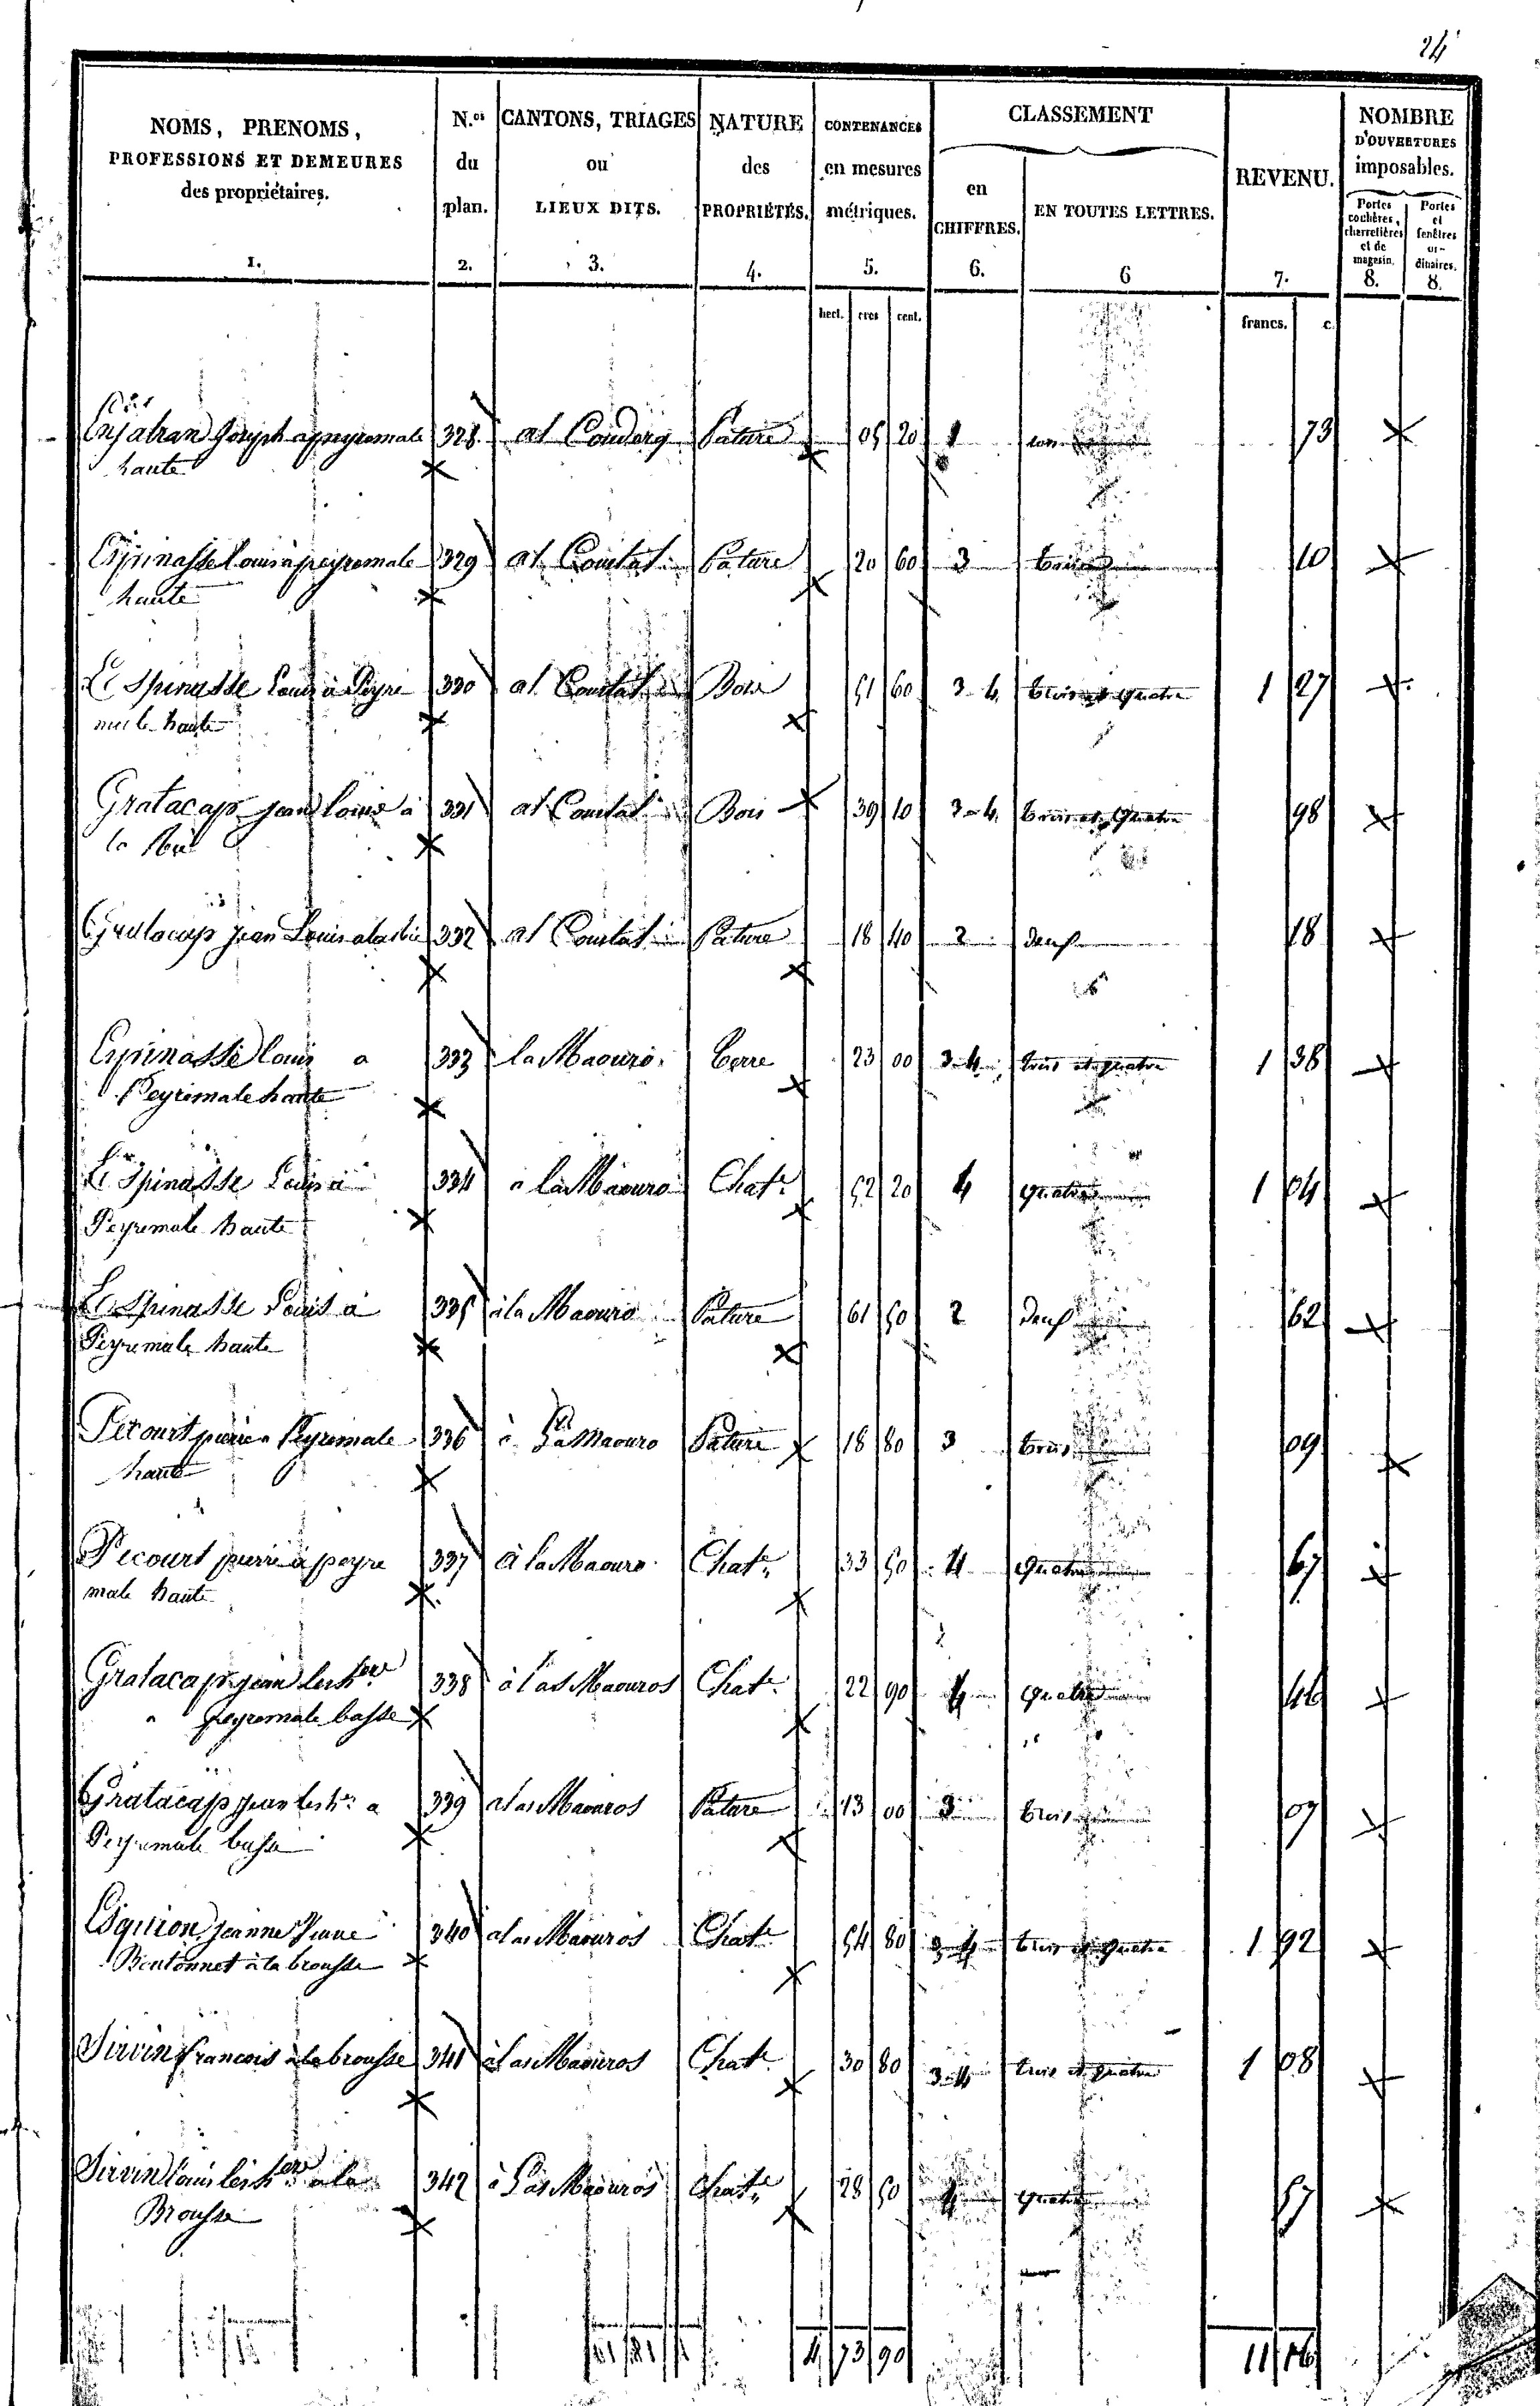 24
NOMS, PRENOMS, PROFESSIONS ET DEMEURES des propriétaires. 1.
N.os du plan. 2.
CANTONS, TRIAGES ou LIEUX DITS. 3.
NATURE des PROPRIÉTÉS. 4.
CONTENANCES en mesures métriques. 5.
CLASSEMENT
en CHIFFRES. 6.
EN TOUTES LETTRES. 6
REVENU. 7.
NOMBRE D'OUVERTURES imposables.
Portes cochères, charretières et de magasin. 8.
Portes et fenêtres or- dinaires. 8.
hect. ares cent. francs. c.
Joseph a peyremale 328 al Couderq Pature 05 20 1 73
haute
Espinasse Louis a peyremale 329 al Coustat Pature 20 60 3 trois 10
haute
Lespinasse Louis à Peyre 330 al Coustat Bois 51 60 3-4 trois et quatre 1 27
male haute
Gratacap jean louis a 331 al Coustat Bois 39 10 3-4 trois et quatre 98
Gratacap jean Louis 332 al Coustat Pature 18 40 2 deux 18
Espinasse louis a 333 la Maouro terre 23 00 3-4 trois et quatre 1 38
Peyremale haute
Lespinasse Louis à 334 a la Maouro Chat.e 52 20 4 quatre 1 04
Peyremale haute
Lespinasse Louis à 335 à la Maouro Pature 61 50 2 deux 62
Peyremale haute
Pecourt pierre a Peyremale 336 à La Maouro Pature 18 80 3 trois 09
haute
Pecourt pierre à peyre 337 à la Maouro Chat.e 33 50 4 quatre 67
male haute
Gratacap jean les h.ers 338 à Las Maouros Chat.e 22 90 4 quatre 46
a peyremale basse
Gratacap jean les h.rs a 339 a las Maouros Pature 13 00 3 trois 07
Peyremale basse
Esquion jeanne Veuve 340 a las Maouros Chat.e 54 80 3-4 trois et quatre 1 92
Bentonnet à la brousse
Sirvin francois à la brousse 341 à Las Maouros Chat.e 30 80 3-4 trois et quatre 1 08
Sirvin louis les h.ers a la 342 à Las Maouros Chat.e 28 50 4 quatre 57
Brousse
4 73 90 11 16